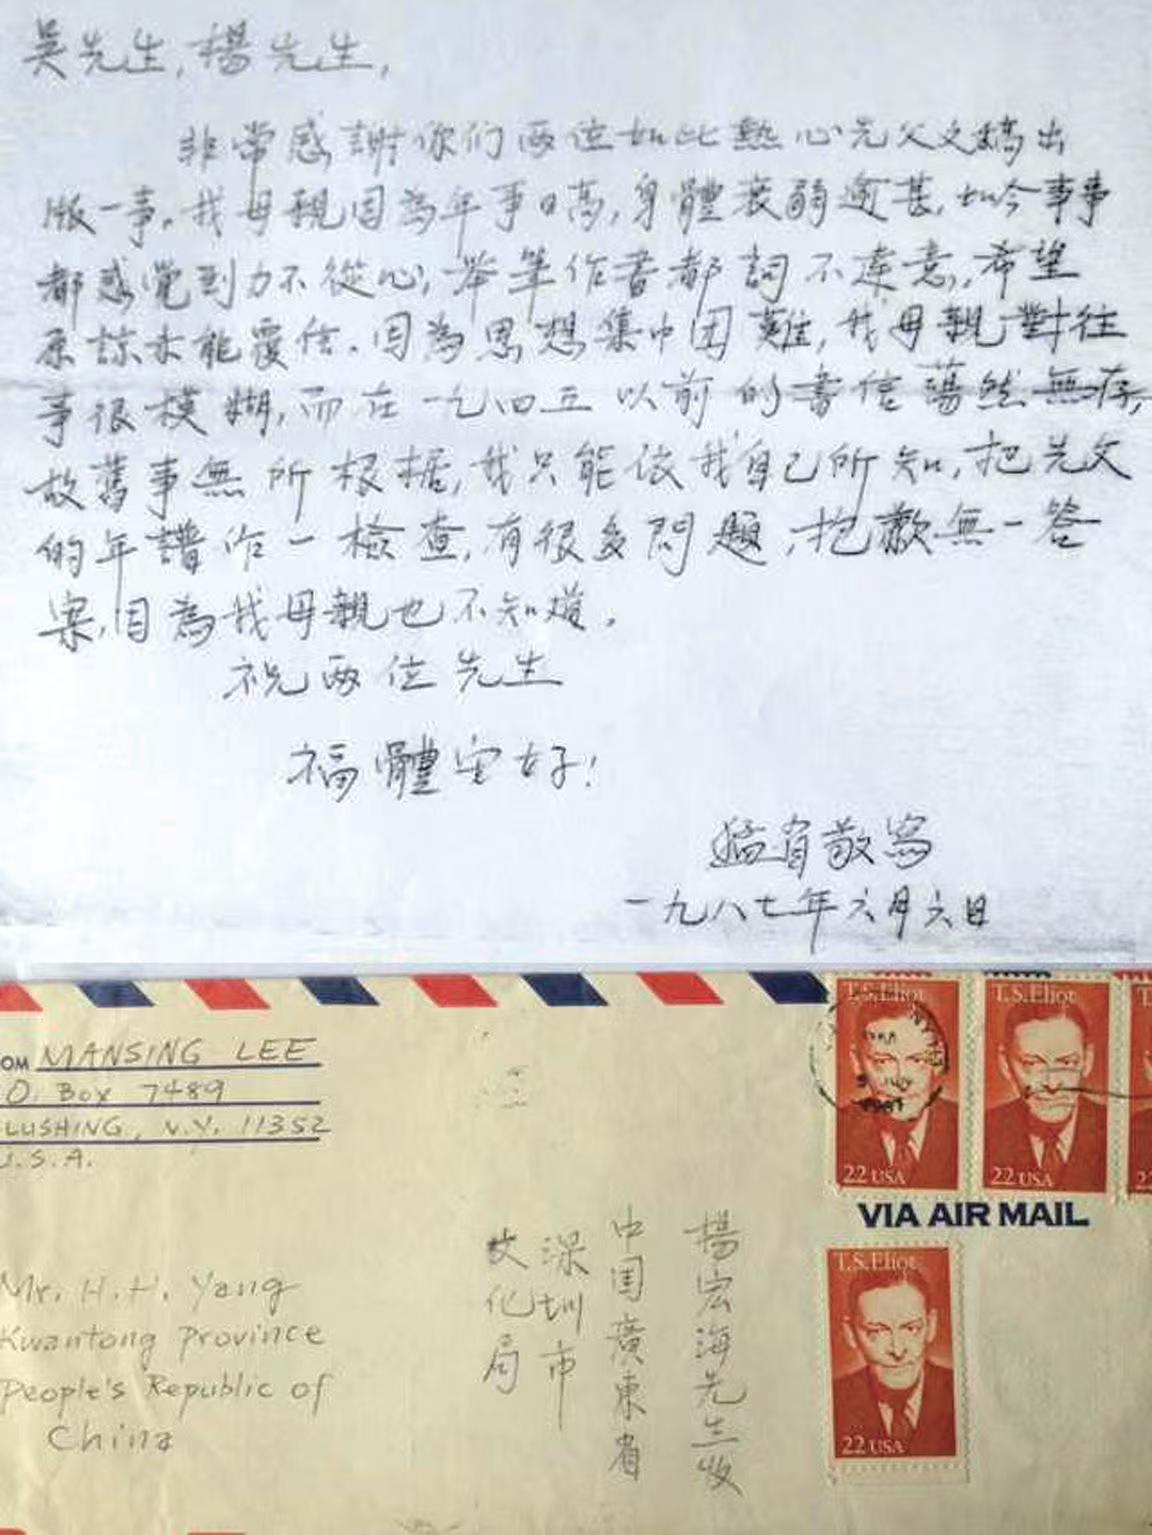 吴先生，楊先生，
非常感謝你们两位如此熱心先父文稿出
版一事。我母親因為年事日高，身體衰弱逾甚，如今事事
都感覺到力不從心，举筆作書都詞不達意，希望
原諒未能覆信。因為思想集中困難，我母親對往
事很模糊，而在一九四五以前的書信蕩然無存，
故舊事無所根据，我只能依我自己所知，把先父
的年譜作一檢查，有很多問題，抱歉無一答
案，因為我母親也不知道。
祝两位先生
福體安好！
猛省敬寫
一九八七年六月六日
OM MANSING LEE
O. Box 7489
LUSHING, N.Y. 11352
U.S.A.
Mr. H.H. Yang
Kwantong province
People's Republic of
China
楊宏海先生收
中国廣東省
深圳市
文化局
T.S.Eliot
22 USA
T.S.Eliot
22 USA
VIA AIR MAIL
T.S.Eliot
22 USA